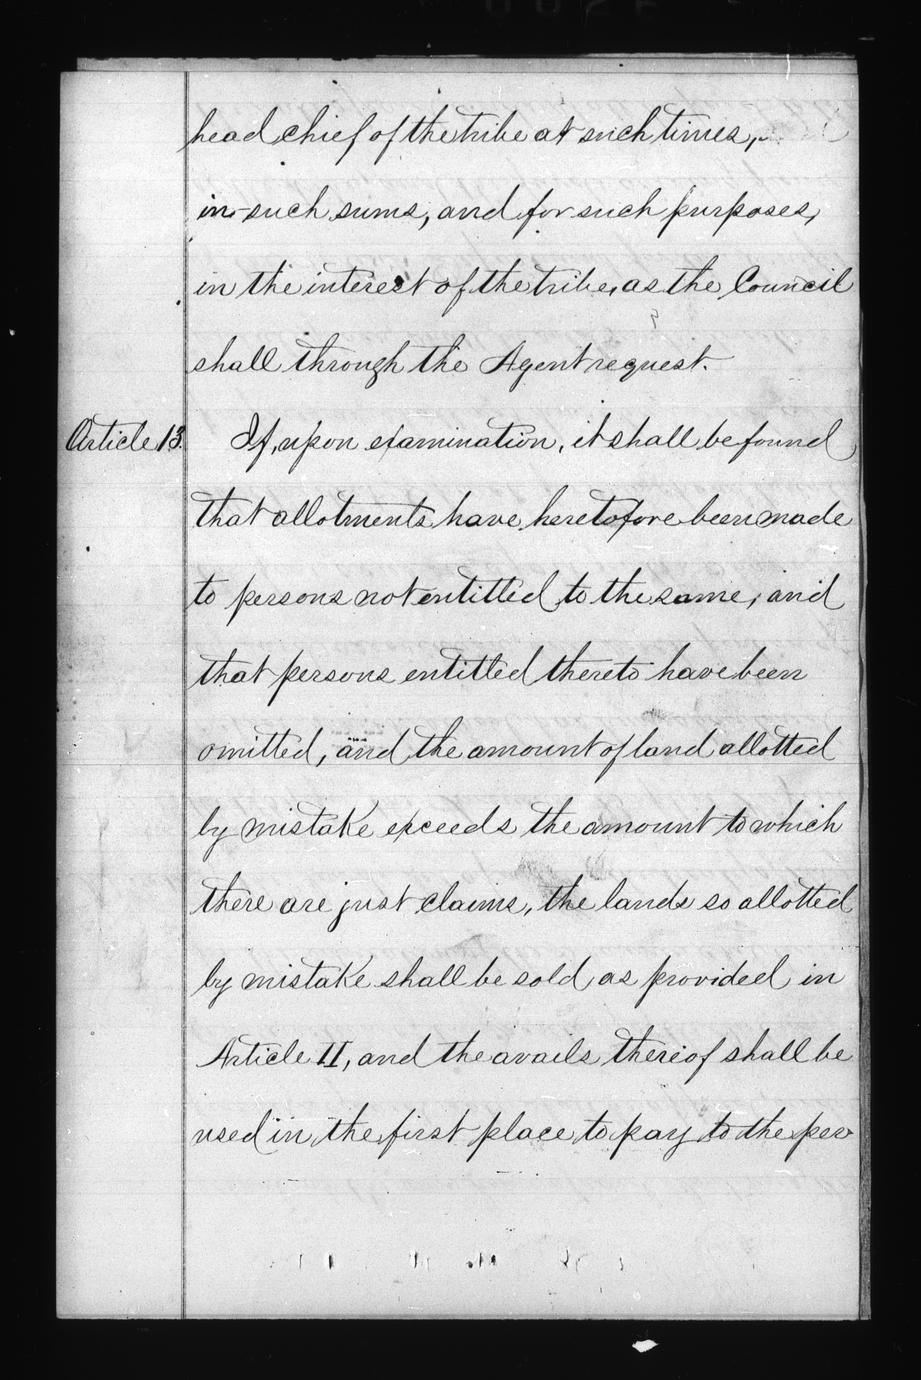 head chief of the tribe at such times,
in such sums, and for such purposes,
in the interest of the tribe, as the Council
shall through the Agent request.
Article 13. If, upon examination, it shall be found
that allotments have heretofore been made
to persons not entitled to the same, and
that persons entitled thereto have been
omitted, and the amount of land allotted
by mistake exceeds the amount to which
there are just claims, the lands so allotted
by mistake shall be sold as provided in
Article II, and the avails thereof shall be
used in the first place to pay to the per-